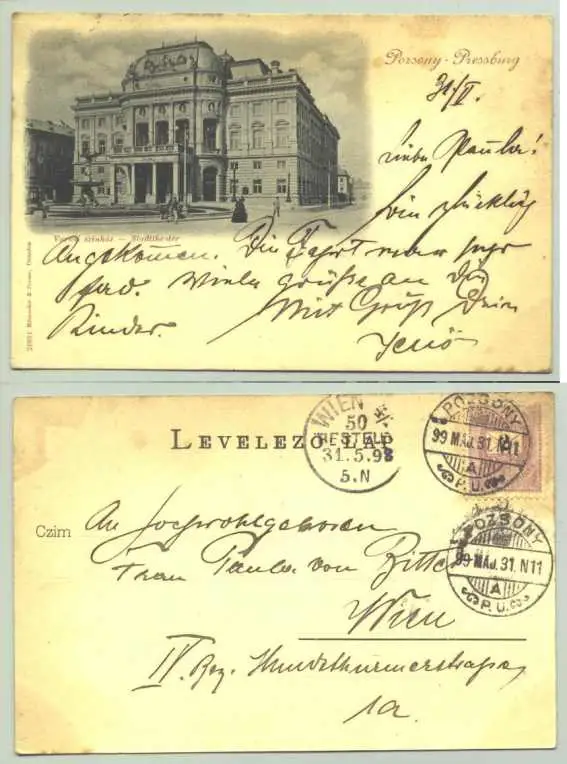 Porsony - Pressburg
31/V.
Liebe Paula!
Bin glücklich
Városi színház. — Stadttheater
Angekommen. Die Fahrt war sehr
fad. Viele grüße an die
Kinder. Mit Gruß Dein
Jenö
WIEN
50
BESTELLT
31.5.98
5.N
POZSONY
99 MÁJ. 31. N11
A
P.U.
LEVELEZŐ LAP
Czim
An Hochwohlgeboren
Frau Paula von
Wien
IV. Bez. Hundsthurmerstrasse
1a.
POZSONY
99 MÁJ. 31. N11
A
P.U.